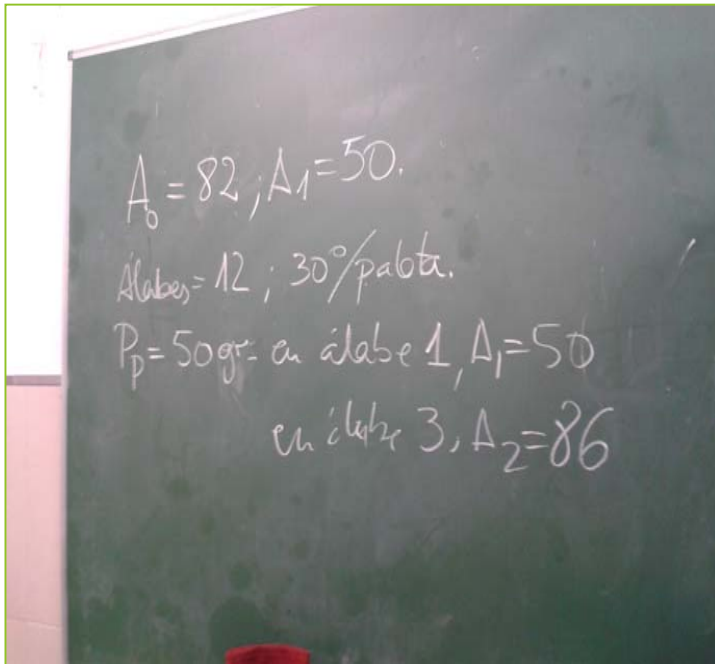 A₀ = 82 ; A₁ = 50.
Álabes = 12 ; 30°/paleta.
Pₚ = 50gr. en álabe 1, A₁ = 50
en álabe 3, A₂ = 86